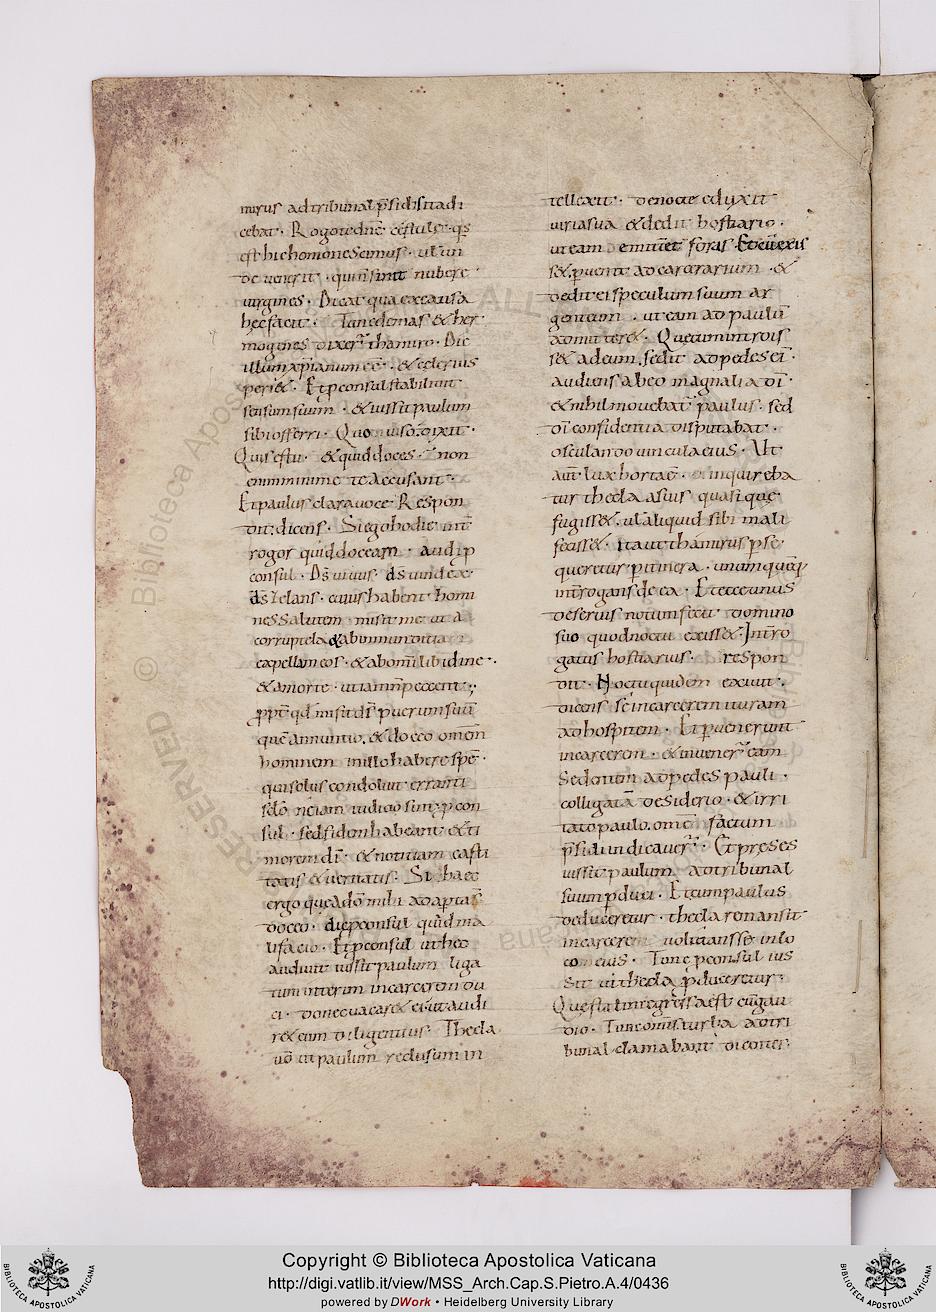 mirus ad tribunal p̄sidis stadi
cebat · Rogo te dn̄e c̄sules q̄s
est hic homo nescimus · ul̄ un
de venerit · qui n̄ sinit nubere
virgines · Dicat qua ex causa
hęc facit · Tunc demas & her
mogenes dixer̄ thamiro · Dic
illum xp̄ianum eē · & celerius
peri& · Et p̱consul stabilivit
sensum suum · & iussit paulum
sibi offerri · Quo viso · dixit ·
Quis es tu · & quid doces · non
enim minime te accusant ·
Et paulus clara voce Respon
dit · dicens · Si ego hodie int̄
rogor quid doceam · audi p̱
consul · Ds̄ vivus · ds̄ vindex ·
ds̄ zelans · cuius habent homi
nes salutem misit me ut a
corruptela & ab inmunditia
expellam eos · & ab omī libidine ·
& a morte · ut iam n̄ peccent ;
p̱pt̄ qd̄ misit ds̄ puerum suū
quē annuntio · & doceo omēn
hominem in illo habere spē ·
qui solus condoluit erranti
sc̄lo n̄ &iam iudicio sint p̱con
sul · sed fidem habeant & ti
morem dī · & notitiam casti
tatis & veritatis · Si haec
ergo que a dō mihi adaptas̄
doceo · dic p̱consul quid ma
li facio · Et p̱consul ut hec
audivit iussit paulum liga
tum interim in carcerem du
ci · donec vacar& ei · ut audi
r& eum diligentius · Thecla
vō ut paulum reclusum in
tellexit · de nocte eduxit
viria sua & dedit hostiario ·
ut eam emitt& foris · Et cū exis
s& · p̱venit ad carcararium · &
dedit ei speculum suum ar
genteum · ut eam ad paulū
admitter& · Que cum introis
s& ad eum · sedit ad pedes eī ·
audiens ab eo magnalia dī ·
& nihil movebat̄ paulus · sed
dī confidentia disputabat ·
osculando vincula eius · Ut
aut̄ lux horta ē · inquireba
tur thecla a suis quasi que
fugiss& · ul̄ aliquid sibi mali
feciss& · ita ut thamirus p̱ se ·
quer&ur p̱ itinera · unumquēq;
int̄rogans de ea · Et ecce unus
de servis notum fecit domino
suo quod noctu exiss& · Intro
gatus hostiarius · respon
dit · Noctu quidem exivit ·
dicens se in carcerem ituram
ad hospitem · Et p̱venerunt
in carcerem · & invener̄ eam
Sedentem ad pedes pauli ·
colligatā desiderio · & irri
tato paulo · omē factum
p̄sidi indicaver̄ · Et preses
iussit paulum ad tribunal
suum p̱duci · Et cum paulus
deduceretur · thecla remansit
in carcere volutans se in lo
co eius · Tunc p̱consul ius
Sit ut thecla p̱duceretur ·
Que statim egressa est cū gau
dio · Tunc omīs turba ad tri
bunal clamabant dicentes ·
Copyright © Biblioteca Apostolica Vaticana
http://digi.vatlib.it/view/MSS_Arch.Cap.S.Pietro.A.4/0436
powered by DWork • Heidelberg University Library